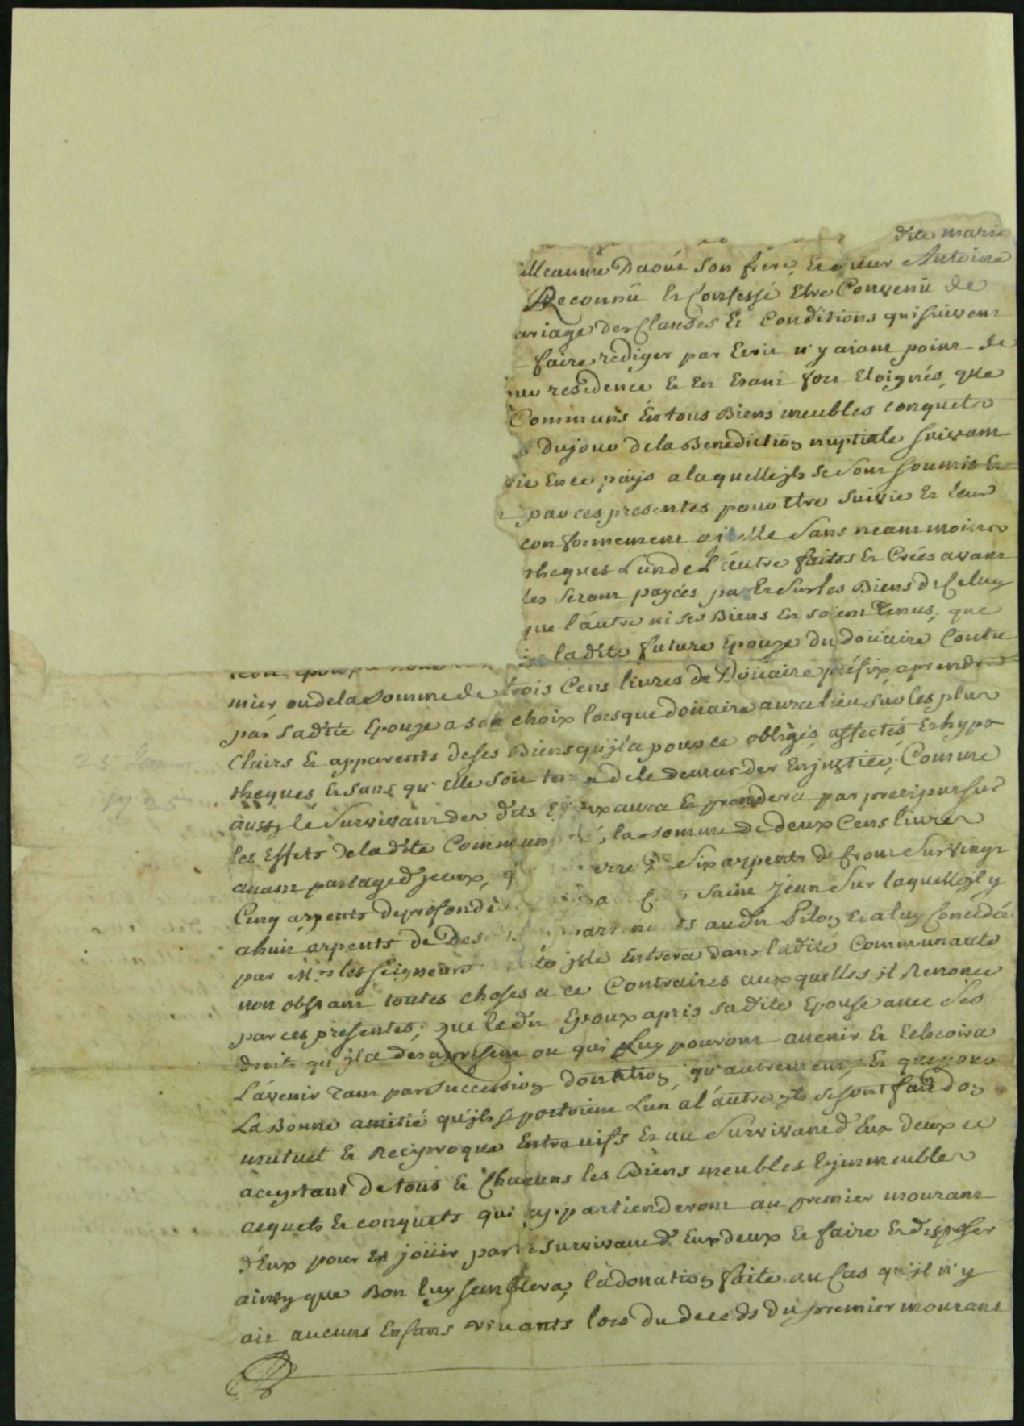 dite marie
Jeanne Daoüt son frere, Et sieur Antoine
Reconnû Et Confessé Etre Convenû de
ariage des Clauses Et Conditions qui suivent
faire rediger par Ecrit n'y aiant point de
residence Et En Etant fort Eloignés, que
Communs En tous Biens meubles conquets
Du jour de la Benediction nuptiale suivant
En ce païs a laquelle jls se sont soumis Et
par ces presentes pour Etre suivie Et leur
conformement a jcelle sans neammoins
theques L'un de L'autre faites Et Créés avant
les seront payées par Et sur les Biens de Celuy
que l'autre ni ses Biens En soient tenus, que
la dite future Epouze du doüaire Coutu
mier ou de la somme de trois Cens livres de Doüaire préfix, a prendre
par sadite Epouze a son choix lorsque doüaire aura lieu sur les plus
Clairs Et apparents de ses Biens qu'jl a pour ce obligés, affectés Et hypo
theques Et sans qu'elle soit tenüe de le demander En justice, Comme
aussy le survivant des dits Epoux aura Et prendera par preciput sur
les Effets de la dite Communauté, la somme de deux Cens livres
avant partage d'jceux, six arpents de front sur vingt
Cinq arpents de profondeur Saint Jean sur laquelle jl y
a huit arpents de au dit Pilon Et a luy Concedée
par Mrs les seigneurs Entrera dans ladite Communauté
non obstant toutes choses a ce Contraires auxquelles jl Renonce
par ces presentes, que le dit Epoux a pris sadite Epouse avec ses
droits qu'jl a des a present ou qui Luy pouront avenir Et Echeoira
L'avenir Tant par succession donation, qu'autrement, Et que pour
La Bonne amitié qu'jls se portoient L'un a l'autre jls se sont fait don
mutuel Et Reciproque Entre vifs Et au survivant d'Eux deux ce
aceptant de tous Et Chacuns les Biens meubles Et jmmeubles
acquets Et conquets qui appartienderont au premier mourant
d'Eux pour En joüir par le survivant d'Eux deux Et faire Et disposer
ainsy que Bon luy semblera, la donation faite au Cas qu'jl n'y
ait aucuns Enfans vivants lors du deceds du premier mourant